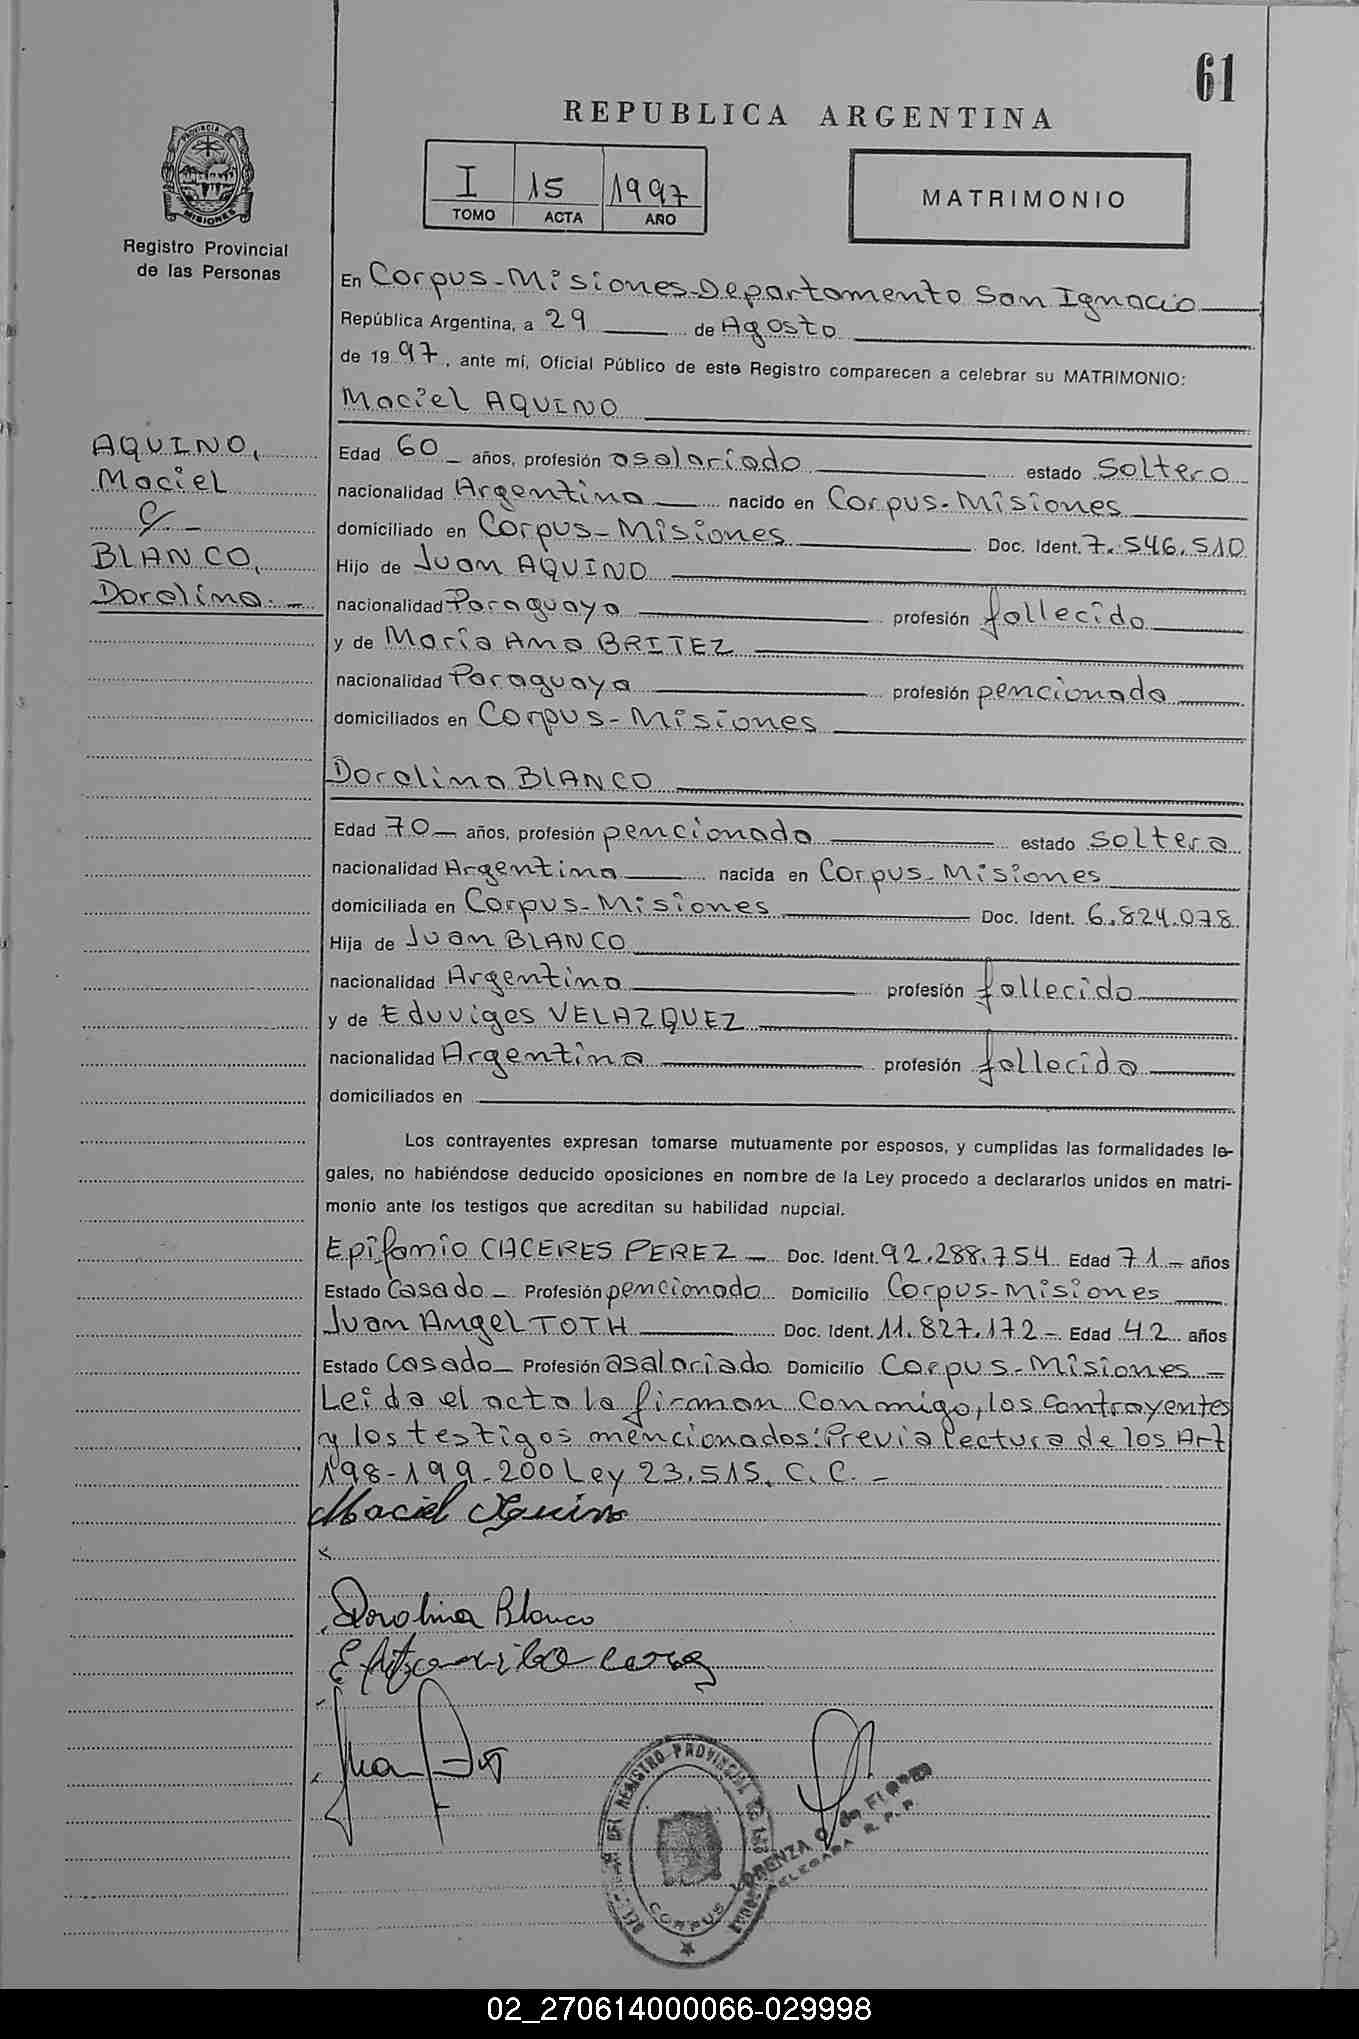 61
REPUBLICA ARGENTINA
I 15 1997
TOMO ACTA AÑO
MATRIMONIO
PROVINCIA DE
MISIONES
Registro Provincial
de las Personas
AQUINO,
Maciel
c/ -
BLANCO,
Doralina. -
En Corpus-Misiones-Departamento San Ignacio
República Argentina, a 29 de Agosto
de 1997, ante mí, Oficial Público de este Registro comparecen a celebrar su MATRIMONIO:
Maciel AQUINO
Edad 60 - años, profesión asalariado estado Soltero
nacionalidad Argentina nacido en Corpus-Misiones
domiciliado en Corpus-Misiones Doc. Ident. 7.546.510
Hijo de Juan AQUINO
nacionalidad Paraguaya profesión fallecido
y de María Ana BRITEZ
nacionalidad Paraguaya profesión pencionada
domiciliados en Corpus-Misiones
Doralina BLANCO
Edad 70 - años, profesión pencionada estado Soltera
nacionalidad Argentina nacida en Corpus-Misiones
domiciliada en Corpus-Misiones Doc. Ident. 6.824.078
Hija de Juan BLANCO
nacionalidad Argentina profesión fallecido
y de Eduviges VELAZQUEZ
nacionalidad Argentina profesión fallecida
domiciliados en
Los contrayentes expresan tomarse mutuamente por esposos, y cumplidas las formalidades le-
gales, no habiéndose deducido oposiciones en nombre de la Ley procedo a declararlos unidos en matri-
monio ante los testigos que acreditan su habilidad nupcial.
Epifanio CACERES PEREZ - Doc. Ident. 92.288.754 Edad 71 - años
Estado Casado - Profesión pencionado Domicilio Corpus-Misiones
Juan Angel TOTH Doc. Ident. 11.827.172 - Edad 42 años
Estado Casado - Profesión asalariado Domicilio Corpus-Misiones -
Leida el acta la firman Conmigo, los Contrayentes
y los testigos mencionados: Previa Lectura de los Art
198-199-200 Ley 23.515. C.C. -
Maciel Aquino
Dorolina Blanco
DEL REGISTRO PROVINCIAL DE LAS
CORPUS
LORENZA O. de FLORES
DELEGADA R.P.P.
02_270614000066-029998